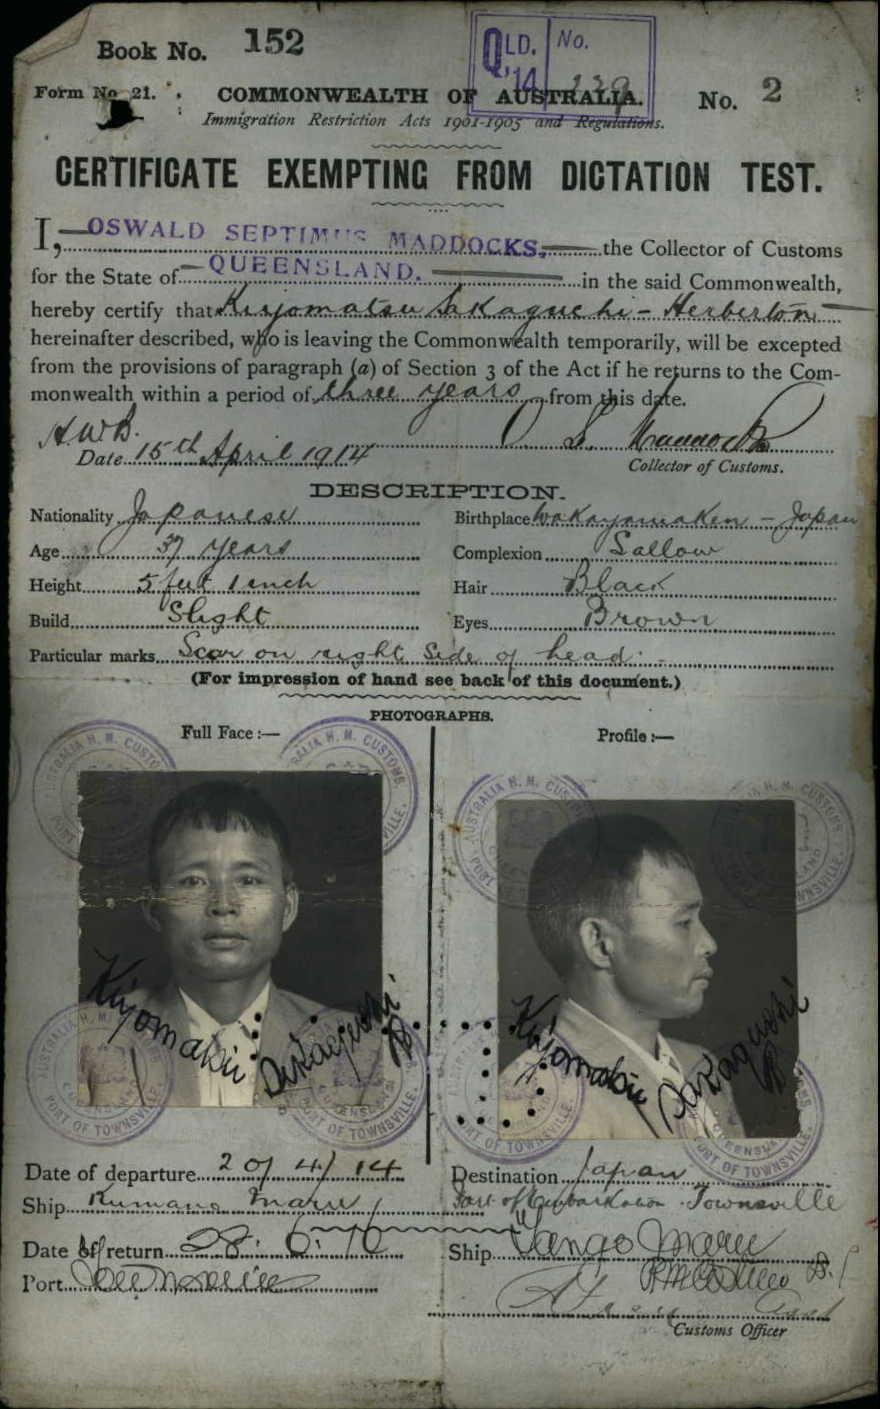 Book No. 152
QLD. '14 No. 139
Form No 21. COMMONWEALTH OF AUSTRALIA. No. 2
Immigration Restriction Acts 1901-1905 and Regulations.
CERTIFICATE EXEMPTING FROM DICTATION TEST.
I, OSWALD SEPTIMUS MADDOCKS, the Collector of Customs
for the State of QUEENSLAND. in the said Commonwealth,
hereby certify that Kiyomatsu Sakaguchi - Herberton
hereinafter described, who is leaving the Commonwealth temporarily, will be excepted
from the provisions of paragraph (a) of Section 3 of the Act if he returns to the Com-
monwealth within a period of three years from this date.
H.W.B. O S Maddocks
Date 15th April 1914
Collector of Customs.
DESCRIPTION.
Nationality Japanese Birthplace Wakayamaken - Japan
Age 37 years Complexion Sallow
Height 5 feet 1 inch Hair Black
Build Slight Eyes Brown
Particular marks Scar on right side of head.
(For impression of hand see back of this document.)
PHOTOGRAPHS.
Full Face:— Profile:—
AUSTRALIA H. M. CUSTOMS
QUEENSLAND
PORT OF TOWNSVILLE.
Kiyomatsu Sakaguchi
Kiyomatsu Sakaguchi
Date of departure 20/4/14 Destination Japan
Ship Kumano Maru Port of Embarkation Townsville
Date of return 28.6.16 Ship Tango Maru
Port Townsville
Customs Officer